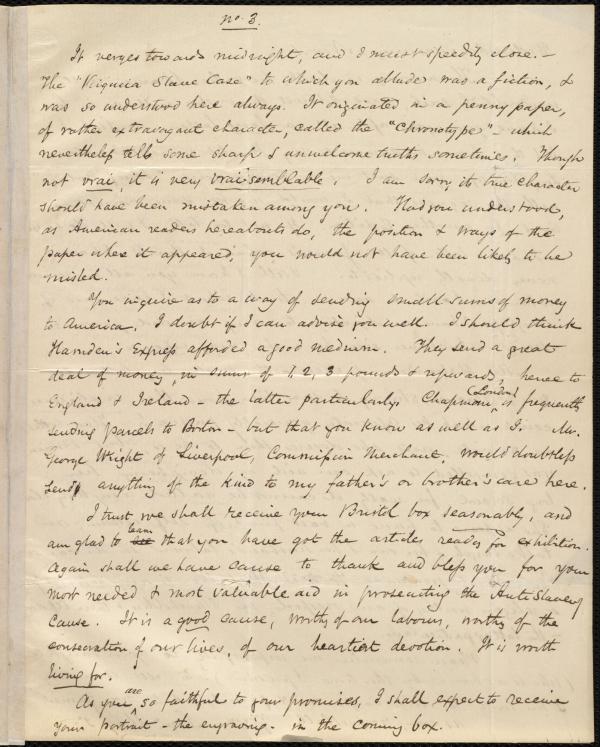 no. 3.
It verges towards midnight, and I must speedily close. –
The "Virginia Slave Case" to which you allude was a fiction, &
was so understood here always. It originated in a penny paper,
of rather extravagant character, called the "Chronotype" – which
nevertheless tells some sharp & unwelcome truths sometimes. Though
not vrai, it is very vraisemblable. I am sorry its true character
should have been mistaken among you. Had you understood,
as American readers hereabouts do, the position & ways of the
paper where it appeared, you would not have been likely to be
misled.
You inquire as to a way of sending small sums of money
to America. I doubt if I can advise you well. I should think
Harnden's Express afforded a good medium. They send a great
deal of money, in sums of 1, 2, 3 pounds & upwards, hence to
England & Ireland – the latter particularly. Chapman, (London) is frequently
sending parcels to Boston – but that you know as well as I. Mr.
George Wright of Liverpool, Commission Merchant, would doubtless
send anything of the kind to my father's or brother's care here.
I trust we shall receive your Bristol box seasonably, and
am glad to learn that you have got the articles ready for exhibition.
Again shall we have cause to thank and bless you for your
most needed & most valuable aid in prosecuting the Anti Slavery
cause. It is a good cause, worthy of our labours, worthy of the
consecration of our lives, of our heartiest devotion. It is worth
living for.
As you are so faithful to your promises, I shall expect to receive
your portrait – the engraving – in the coming box.